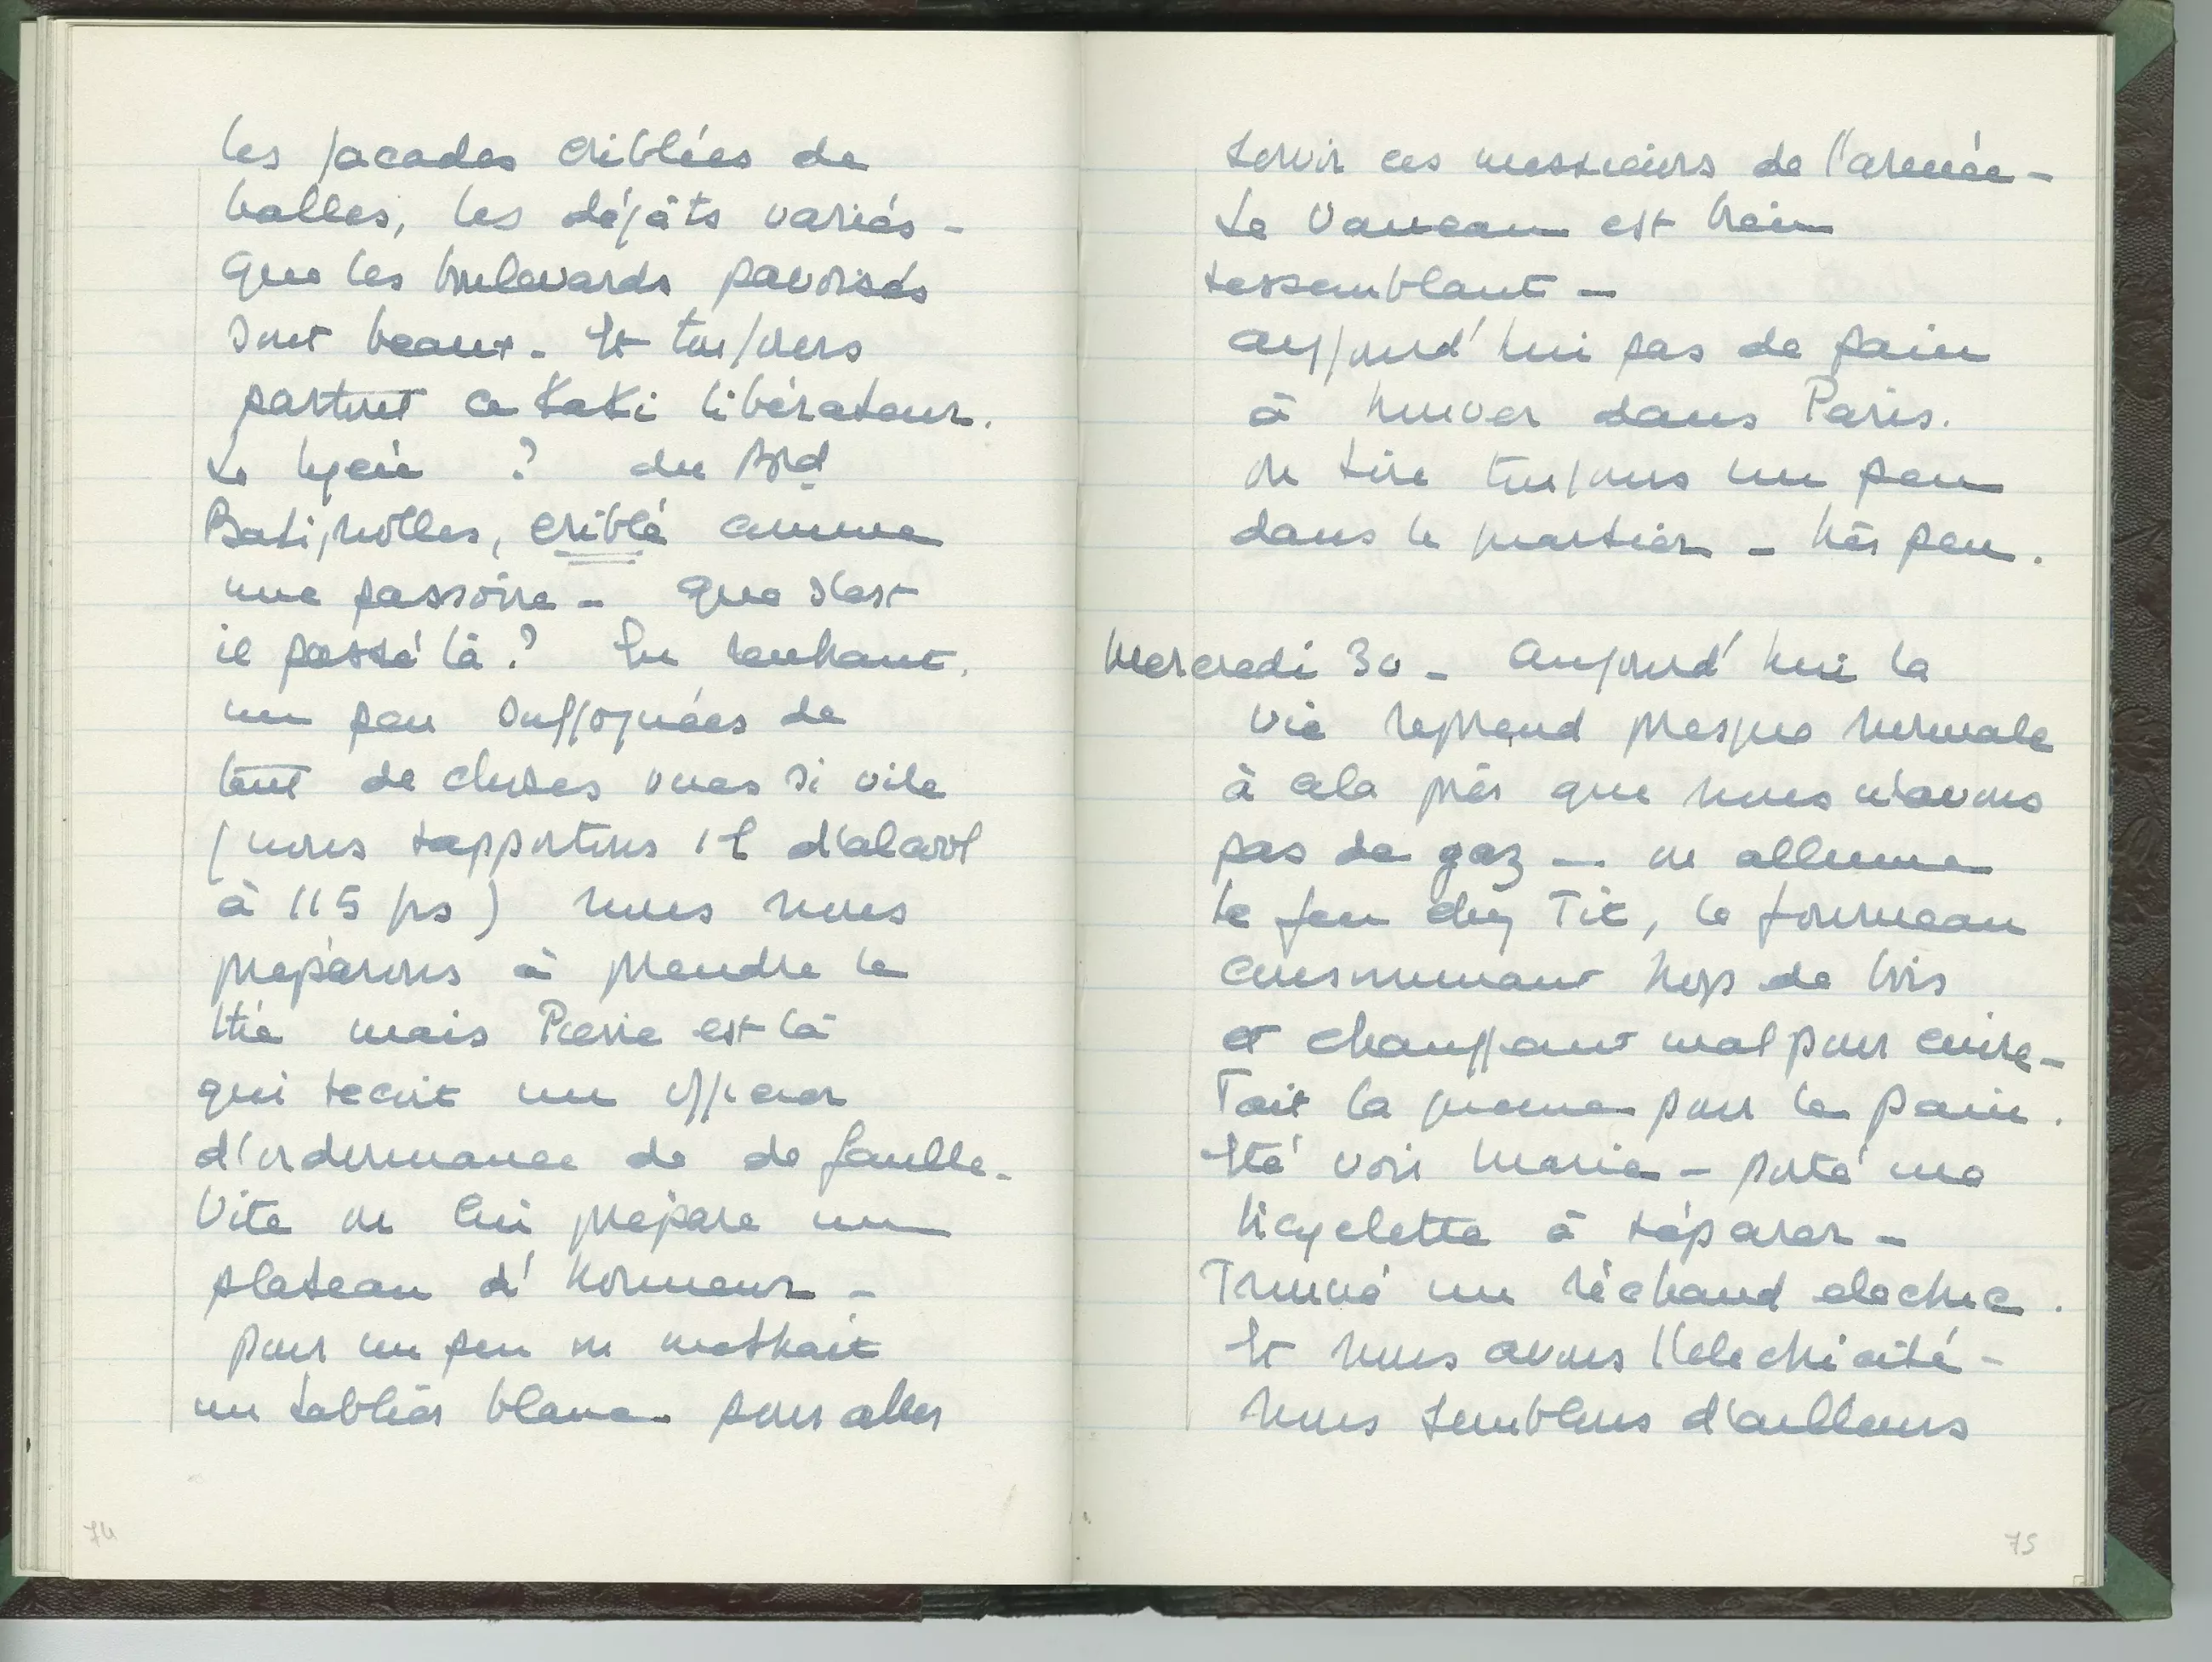 les façades criblées de
balles, les dégâts variés -
Que les boulevards pavoisés
sont beaux. Et toujours
partout ce Kaki libérateur.
Le lycée ? du Bd
Batignolles, criblé comme
une passoire - Que s'est
il passé là ? En rentrant.
un peu suffoquées de
tant de choses vues si vite
(nous rapportons 1 l d'alcool
à 115 frs) nous nous
préparons à prendre le
thé mais Pierre est là
qui reçoit un officier
d'ordonnance de de Gaulle -
Vite on lui prépare un
plateau d'honneur -
pour un peu on mettrait
un tablier blanc pour aller
74
servir ces messieurs de l'armée -
Le Vaneau est bien
ressemblant -
Aujourd'hui pas de pain
à trouver dans Paris.
On tire toujours un peu
dans le quartier - très peu.
Mercredi 30 - Aujourd'hui la
vie reprend presque normale
à cela près que nous n'avons
pas de gaz - on allume
le feu chez Tit, le fourneau
consommant trop de bois
et chauffant mal pour cuire -
Fait la queue pour le pain.
Été voir Marie - porté ma
bicyclette à réparer -
Trouvé un réchaud electric.
Et nous avons l'electricité -
Nous semblons d'ailleurs
75